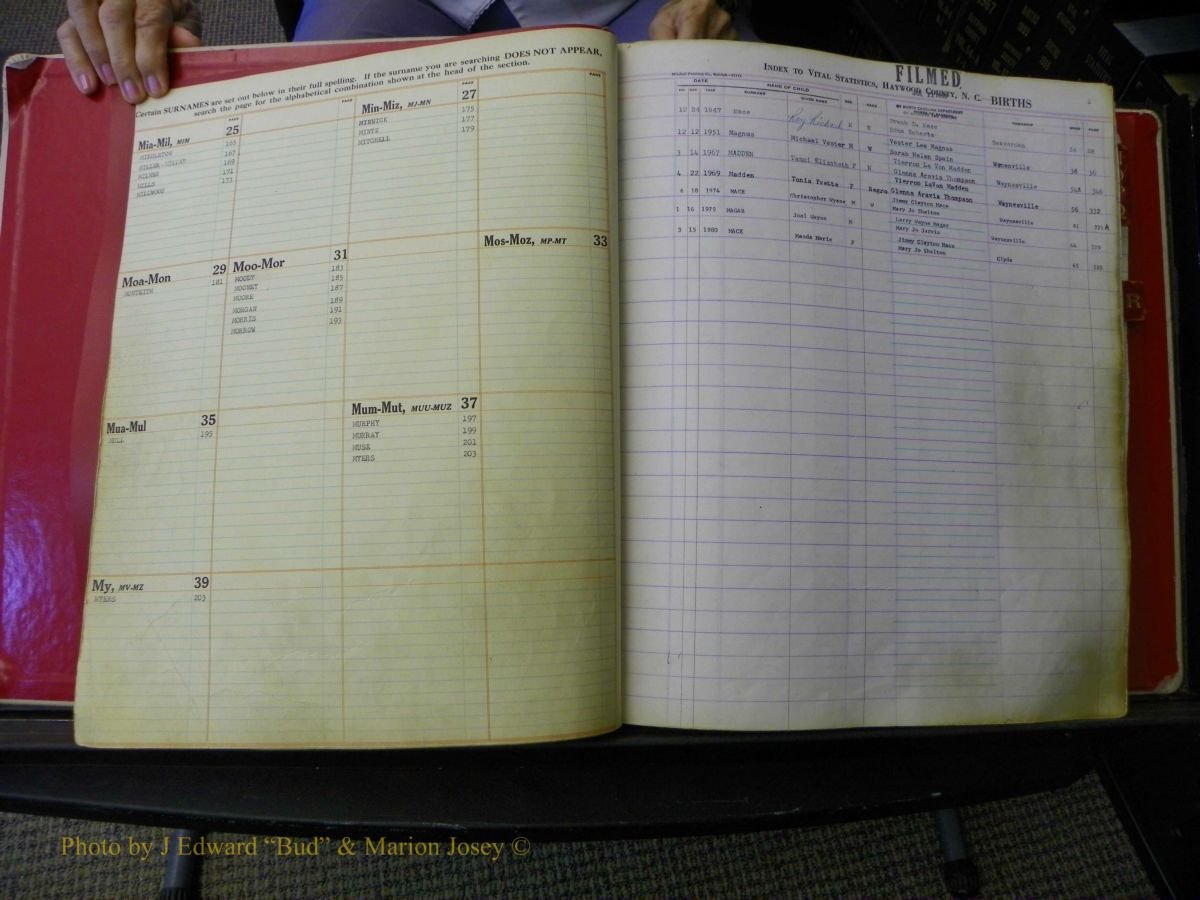 Certain SURNAMES are set out below in their full spelling. If the surname you are searching DOES NOT APPEAR,
search the page for the alphabetical combination shown at the head of the section.
PAGE PAGE PAGE PAGE
Mia-Mil, MIM 25
MIDDLETON 165
MILLER 167
MILNER 169
MILLS 171
MILLWOOD 173
Min-Miz, MJ-MN 27
MINNICK 175
MINTZ 177
MITCHELL 179
Moa-Mon 29
MONTEITH 181
Moo-Mor 31
MOODY 183
MOONEY 185
MOORE 187
MORGAN 189
MORRIS 191
MORROW 193
Mos-Moz, MP-MT 33
Mua-Mul 35
MULL 195
Mum-Mut, MUU-MUZ 37
MURPHY 197
MURRAY 199
MUSE 201
MYERS 203
My, MV-MZ 39
MYERS 203
INDEX TO VITAL STATISTICS, HAYWOOD COUNTY, N. C. BIRTHS
FILMED
DATE NAME OF CHILD
MO DAY YEAR SURNAME GIVEN NAME SEX RACE TOWNSHIP BOOK PAGE
12 24 1947 Mace Roy Richard Frank D. Mace Beaverdam
Edna Roberts
12 12 1951 Magnus Michael Vester M W Vester Lee Magnus Waynesville 38 56
Sarah Helen Spain
3 14 1967 MADDEN Elizabeth F N Tierron La Von Madden Waynesville 54A 346
Glenna Aravia Thompson
4 22 1969 Madden Tonia Yvette F Negro Tierron LaVon Madden Waynesville 56 332
Glenna Aravia Thompson
6 18 1974 MACE Christopher M W Jimmy Clayton Mace Waynesville 61 271A
Mary Jo Shelton
1 16 1979 MAGAR Joel Wayne M Larry Wayne Magar Waynesville
Mary Jo Jarvis
3 15 1980 MACE Manda Marie F Jimmy Clayton Mace Clyde 65
Mary Jo Shelton
Photo by J Edward “Bud” & Marion Josey ©